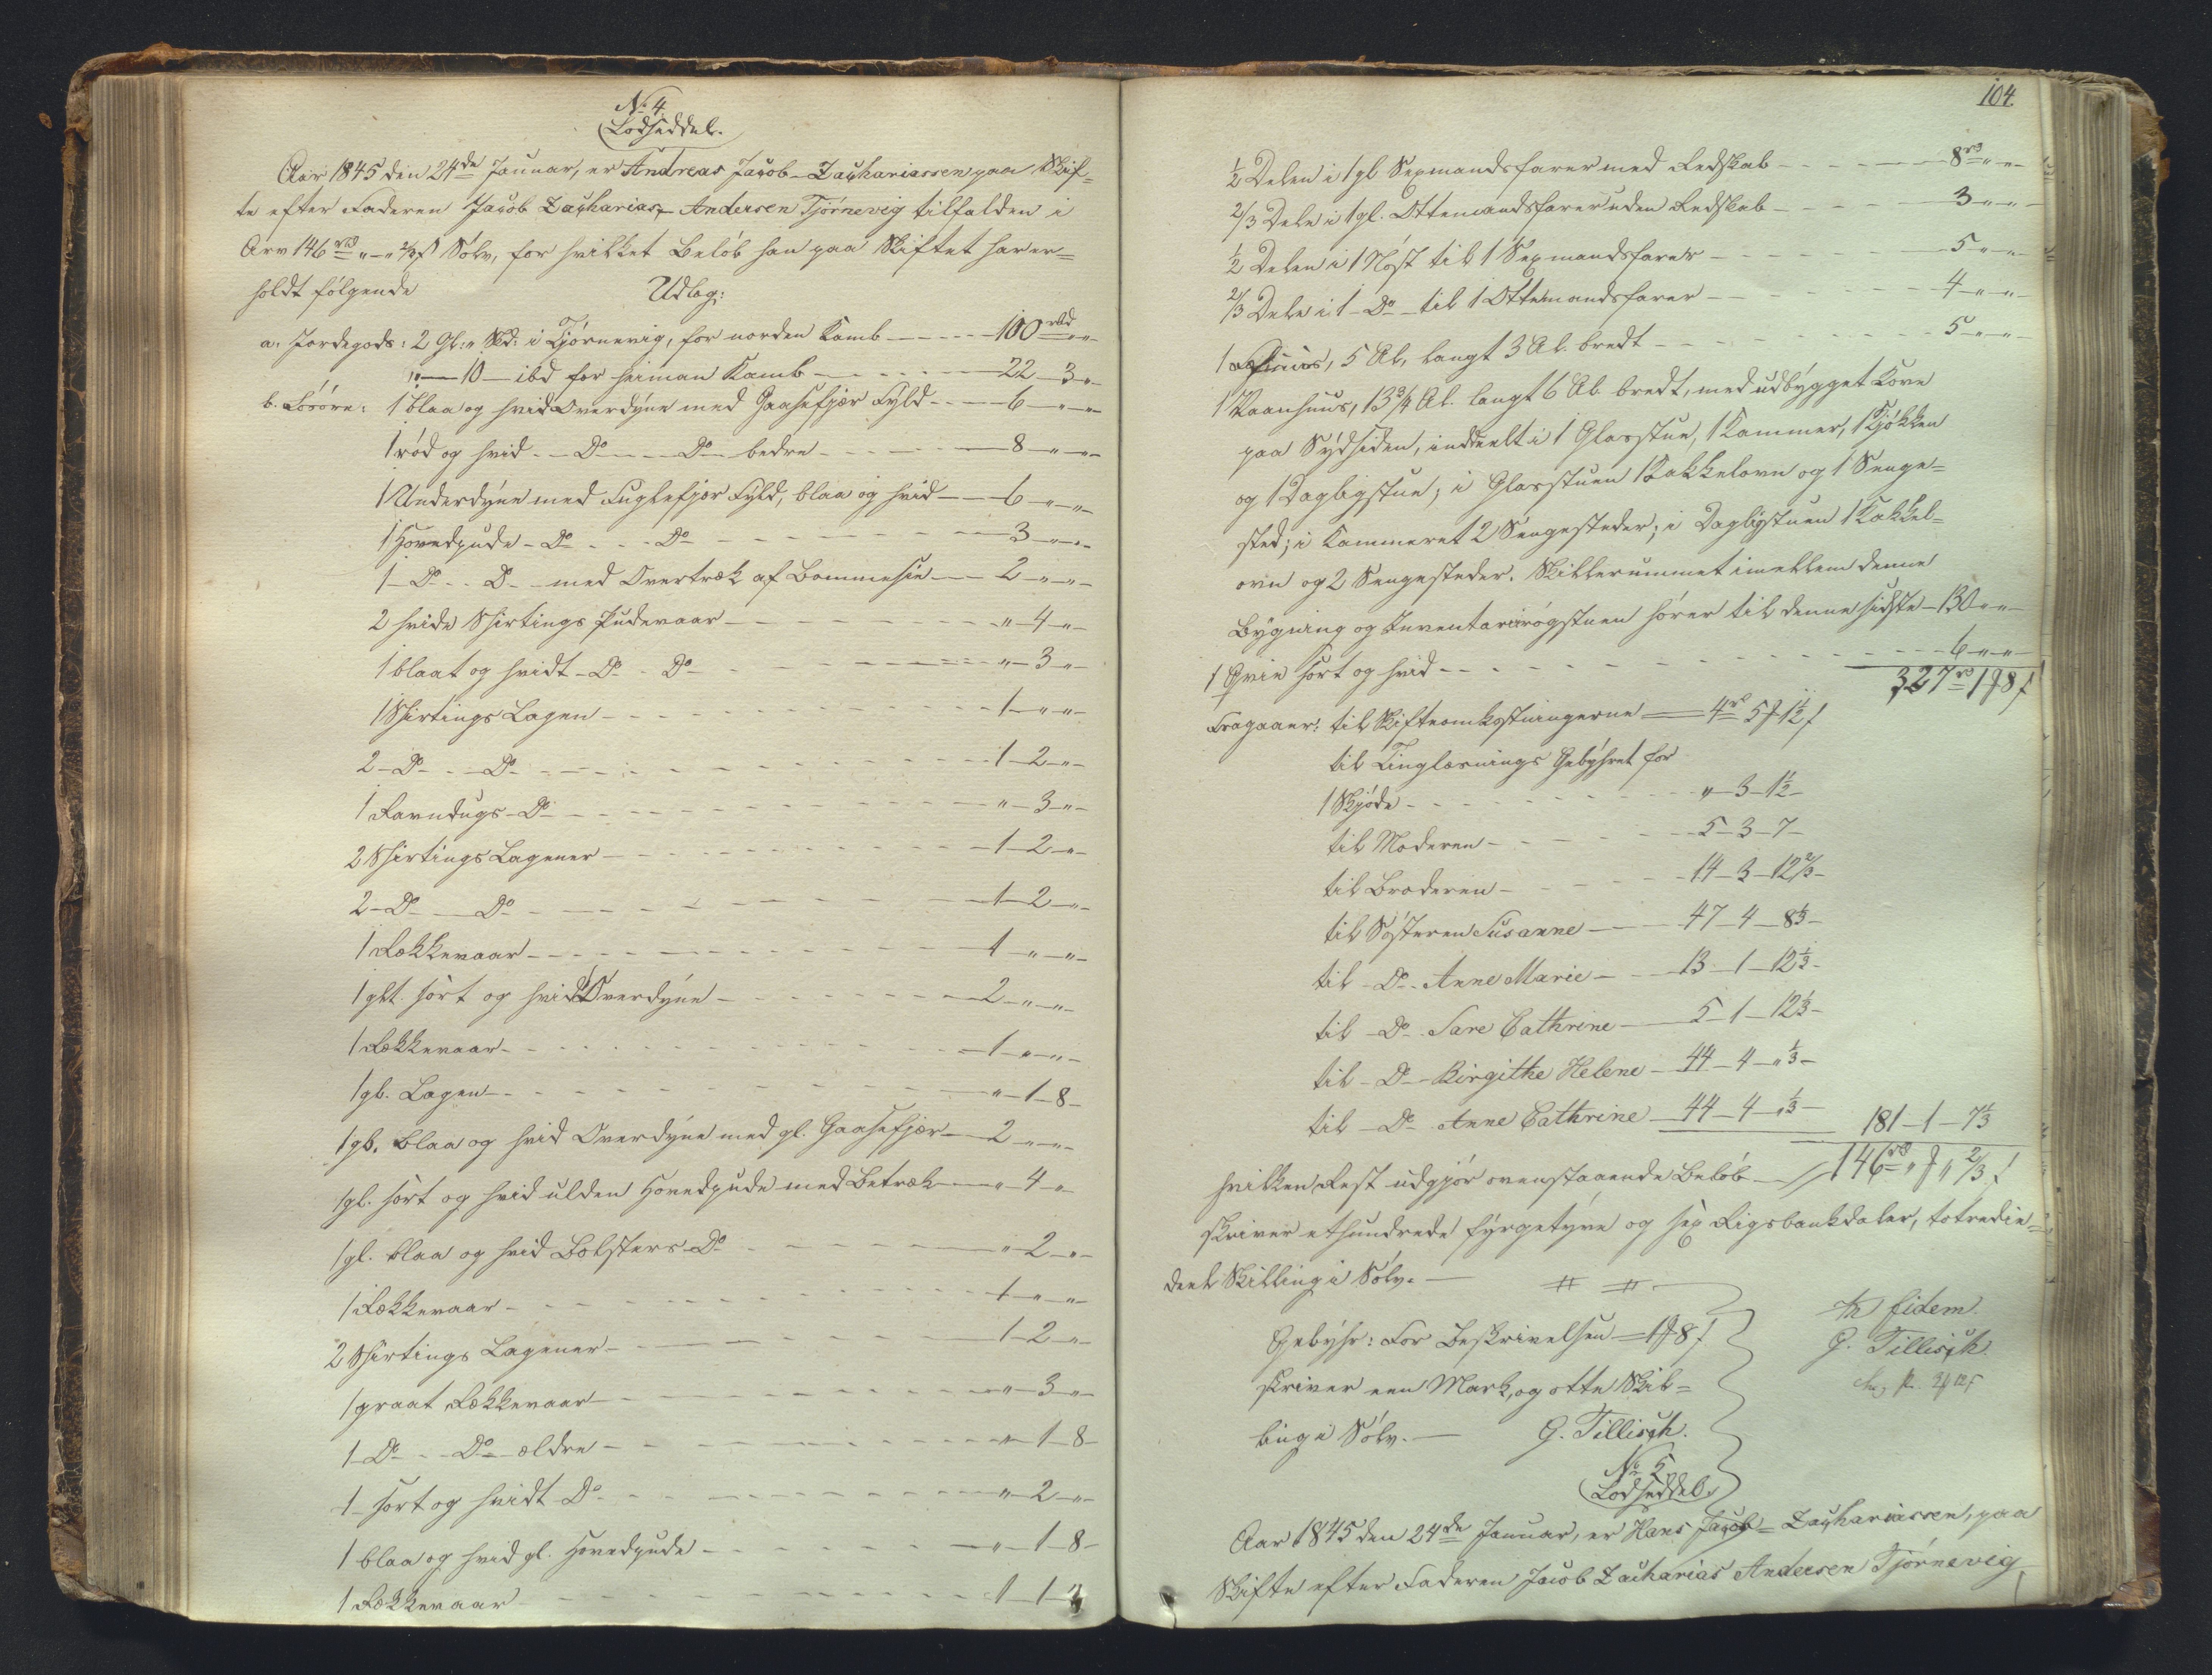 No 4.
Lodseddel.
Aar 1845 den 24de Januar, er Andreas Jacob Zachariassen paa Skif=
te efter Faderen Jacob Zacharias Andersen Tjørnevig tilfalden i
Arv 146 rbd " - " 2/3 s Sølv, for hvilket Beløb han paa Skiftet har er=
holdt følgende Udlæg:
a. Jordegods: 2 Gl: " Sk: i Tjørnevig, for norden Kamb - 100 rbd " "
" - 10 - ibd for heiman Kamb - 22 - 3 - "
b. Løsøre: 1 blaa og hvid Overdyne med Gaasefjær Fyld - 6 - " - "
1 rød og hvid - Do - Do bedre - 8 - " - "
1 Underdyne med Fuglefjær Fyld, blaa og hvid - 6 - " - "
1 Hovedpude - Do - Do - 3 - " - "
1 - Do - D - med Overtræk af Bommesie - 2 - " - "
2 hvide Shirtings Pudevaar - " - 4 - "
1 blaat og hvidt - Do - Do - " - 3 - "
1 Shirtings Lagen - 1 - " - "
2 - Do - Do - 1 - 2 - "
1 Ravndugs - Do - " - 3 - "
2 Shirtings Lagener - 1 - 2 - "
2 - Do - Do - 1 - 2 - "
1 Rekkevaar - 1 - " - "
1 glt. sort og hvid Overdyne - 2 - " - "
1 Rekkevaar - 1 - " - "
1 gl. Lagen - " - 1 - 8 -
1 gl. blaa og hvid Overdyne med gl. Gaasefjær - 2 - " - "
1 gl. sort og hvid ulden Hovedpude med Betræk - " - 4 - "
1 gl. blaa og hvid Bolsters Do - " - 2 - "
1 Rekkevaar - 1 - " - "
2 Shirtings Lagener - 1 - 2 - "
1 graat Rekkevaar - " - 3 - "
1 Do - Do ældre - " - 1 - 8 -
1 sort og hvidt Do - " - 2 - "
1 blaa og hvid gl. Hovedpude - " - 1 - 8 -
1 Rekkevaar - 1 - 1
104.
1/2 Delen i 1 gl Sexmandsfarer med Redskab - 8 rbd " "
2/3 Dele i 1 gl. Ottemandsfarer uden Redskab - 3 - " - "
1/2 Delen i 1 Nøst til 1 Sexmandsfarer - 5 - " - "
2/3 Dele i 1 - Do - til 1 Ottemandsfarer - 4 - " - "
1 5 Al. langt 3 Al. bredt - 5 - " - "
1 Vaanhuus, 13 3/4 Al. langt 6 Al. bredt, med udbygget Kove
paa Sydsiden, inddeelt i 1 Glasstue, 1 Kammer, 1 Kjøkken
og 1 Dagligstue; i Glasstuen 1 Kakkelovn og 1 Senge=
sted; i Kammeret 2 Sengesteder; i Dagligstuen 1 Kakkel=
ovn og 2 Sengesteder. Skillerummet imellem denne
Bygning og Inventarirøgstuen hører til denne sidste - 130 " "
1 Qvie sort og hvid - 6 - " - "
327 rbd 1 # 8 s
Fragaaer: til Skifteomkostningerne - 4 rbd 5 # 1 1/2 s
til Tinglæsnings Gebyhret for
1 Skjøde - " - 3 - 1 1/2 -
til Moderen - 5 - 3 - 7 -
til Broderen - 14 - 3 - 12 2/3 -
til Søsteren Susanne - 47 - 4 - 8 1/3 -
til - Do - Anne Marie - 13 - 1 - 12 1/3 -
til - Do - Sare Cathrine - 5 - 1 - 12 1/3 -
til - Do - Birgithe Helene - 44 - 4 - " 1/3 -
til - Do - Anne Cathrine - 44 - 4 - " 1/3 - 181 - 1 - 7 1/3
hvilken Rest udgjør ovenstaaende Beløb - 146 rbd " # " 2/3 s
skriver ethundrede fyrgetyve og sex Rigsbankdaler, totredie=
deel Skilling i Sølv. -
Gebyhr: For Beskrivelsen - 1 # 8 s
skriver een Mark, og otte Skil=
ling i Sølv. - G. Tillisch.
in fidem.
G. Tillisch.
No 5
Lodseddel.
Aar 1845 den 24de Januar, er Hans Jacob Zachariassen, paa
Skifte efter Faderen Jacob Zacharias Andersen Tjørnevig